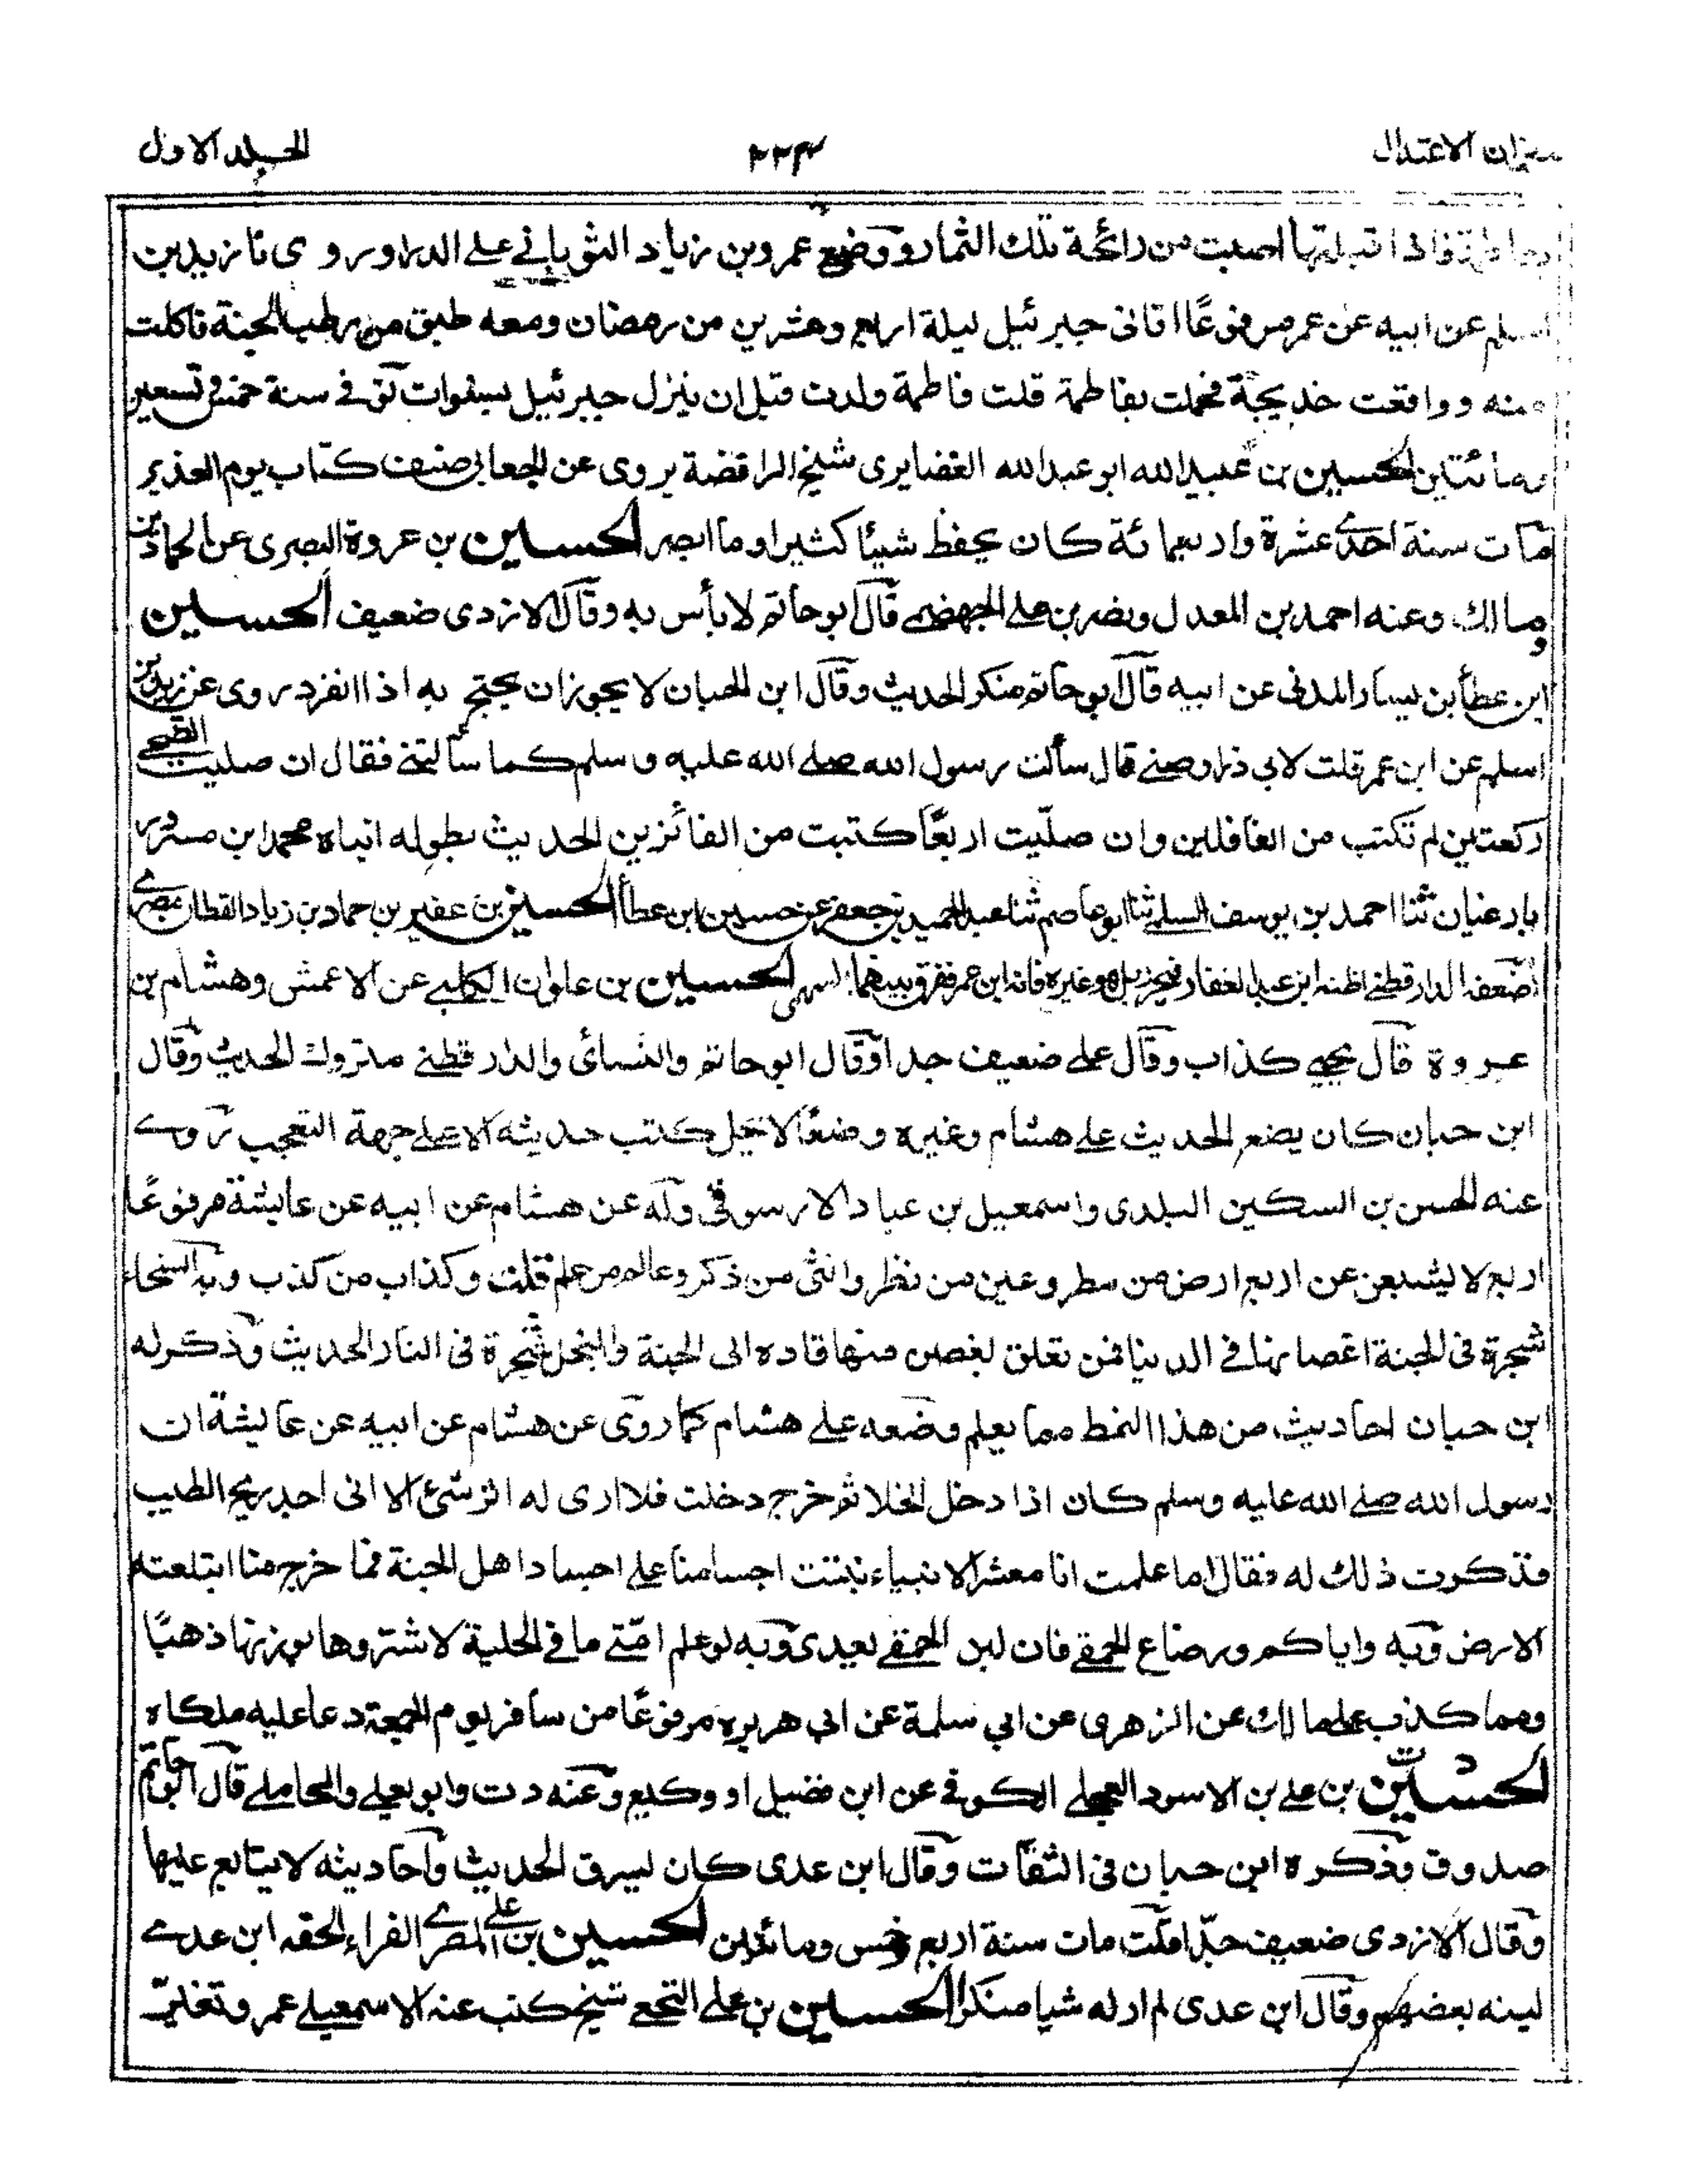 ميزان الاعتدال ٢٣٤ المجلد الاول
فاذا قبلتها اصبت من رائحة تلك الثمار ووضع عمرو بن زياد الثوبانى على الدراوردى نا زيد بن
اسلم عن ابيه عن عمر مرفوعًا اتانى جبرئيل ليلة اربع وعشرين من رمضان ومعه طبق من رطب الجنة فاكلت
منه وواقعت خديجة فحملت بفاطمة قلت فاطمة ولدت قبل ان ينزل جبرئيل بسنوات توفى سنة خمس وتسعين
ومائتين الحسين بن عبيد الله ابو عبد الله الغضايرى شيخ الرافضة يروى عن الجعابى صنف كتاب يوم الغدير
مات سنة احدى عشرة واربعمائة كان يحفظ شيئا كثيرا وما ابصر الحسين بن عروة البصرى عن الحمادين
ومالك وعنه احمد بن المعدل ونصر بن على الجهضمى قال ابو حاتم لا بأس به وقال الازدى ضعيف الحسين
ابن عطأ بن يسار المدنى عن ابيه قال ابو حاتم منكر الحديث وقال ابن الحبان لا يجوز ان يحتج به اذا انفرد روى عن زيد بن
اسلم عن ابن عمر قلت لابى ذر اوصنى قال سألت رسول الله صلى الله عليه وسلم كما سألتنى فقال ان صليت الضحى
ركعتين لم تكتب من الغافلين وان صليت اربعًا كتبت من الفائزين الحديث بطوله انباه محمد ابن مسرور
بارغيان ثنا احمد بن يوسف السلمى ثنا ابو عاصم ثنا عبد الحميد بن جعفر عن حسين ابن عطأ الحسين بن عفير بن حماد بن زياد القطان مصرى
ضعفه الدارقطنى اظنه ابن عبد الغفار وغيره فانه ابن عمر ففرق بينهما انتهى الحسين بن علوان الكلبى عن الاعمش وهشام بن
عروة قال يحيى كذاب وقال على ضعيف جدا وقال ابو حاتم والنسائى والدارقطنى متروك الحديث وقال
ابن حبان كان يضع الحديث على هشام وغيره وضعًا لا يحل كتب حديثه الا على جهة التعجب روى
عنه الحسن بن السكين البلدى واسمعيل بن عباد الارسوفى وله عن هشام عن ابيه عن عايشة مرفوعًا
اربع لا يشبعن من اربع ارض من مطر وعين من نظر وانثى من ذكر وعالم من علم قلت وكذاب من كذب وبه السخاء
شجرة فى الجنة اغصانها فى الدنيا فمن تعلق بغصن منها قاده الى الجنة والبخل شجرة فى النار الحديث وذكر له
ابن حبان احاديث من هذا النمط مما يعلم وضعه على هشام كما روى عن هشام عن ابيه عن عايشة ان
رسول الله صلى الله عليه وسلم كان اذا دخل الخلا ثم خرج دخلت فلا ارى له اثر شئ الا انى اجد ريح الطيب
فذكرت ذلك له فقال اما علمت انا معشر الانبياء نبتت اجسامنا على اجساد اهل الجنة فما خرج منا ابتلعته
الارض وبه واياكم ورضاع الحمقى فان لبن الحمقى يعدى وبه لو علم امتى ما فى الحلبة لاشتروها بوزنها ذهبًا
ومما كذب على مالك عن الزهرى عن ابى سلمة عن ابى هريره مرفوعًا من سافر يوم الجمعة دعا عليه ملكاه
الحسين بن على بن الاسود العجلى الكوفى عن ابن فضيل او وكيع وعنه د ت وابو يعلى والمحاملى قال ابو حاتم
صدوق وذكره ابن حبان فى الثقات وقال ابن عدى كان يسرق الحديث واحاديثه لا يتابع عليها
وقال الازدى ضعيف جدا قلت مات سنة اربع وخمس ومائتين الحسين بن على المصرى الفراء لحقه ابن عدى
لينه بعضهم وقال ابن عدى لم ار له شيا منكرا الحسين بن على النخعى شيخ كتب عنه الاسمعيلى عمر وتغير